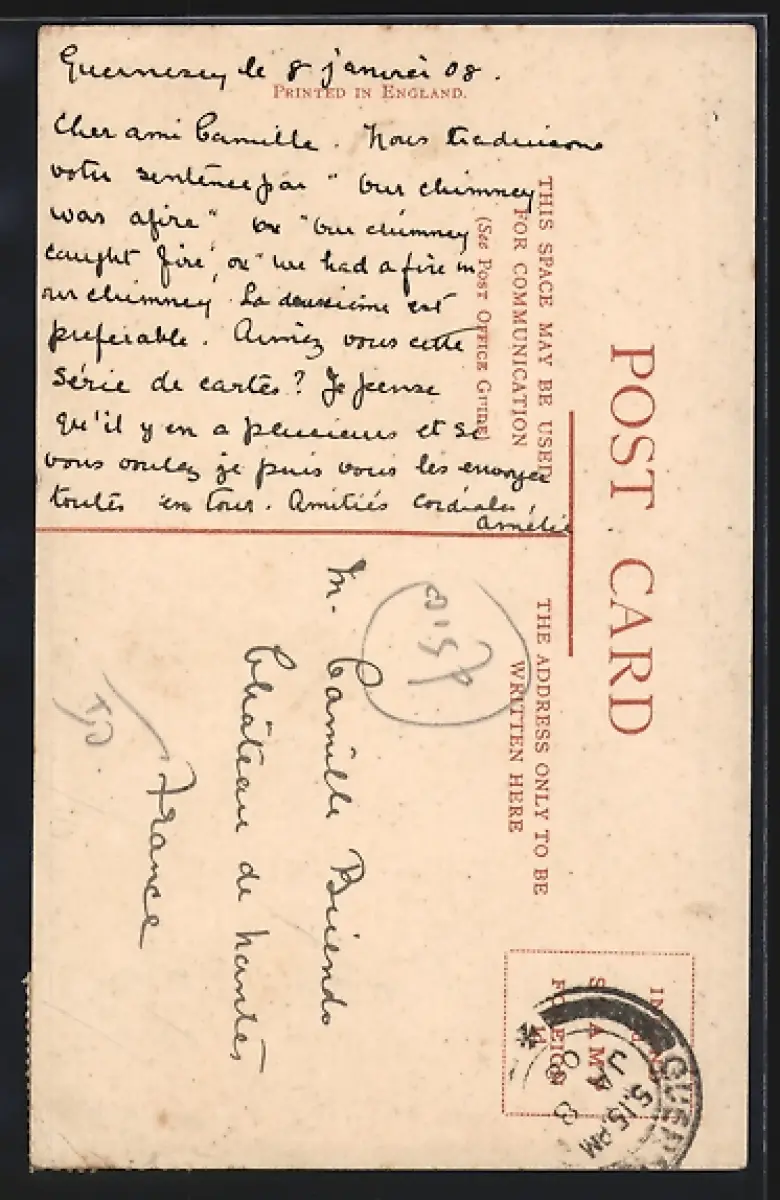 Guernesey le 8 janvier 08.
PRINTED IN ENGLAND.
Cher ami Camille. Nous traduisons
votre sentence par " Our chimney
was afire" ou "Our chimney
caught fire", ou "we had a fire in
our chimney. La deuxième est
préférable. Aimez vous cette
série de cartes? Je pense
qu'il y en a plusieurs et si
vous voulez je puis vous les envoyer
toutes en tour. Amitiés cordiales,
Amélie
THIS SPACE MAY BE USED
FOR COMMUNICATION
(SEE POST OFFICE GUIDE)
POST CARD
THE ADDRESS ONLY TO BE
WRITTEN HERE
M. Camille Briendo
Château de Nantes
France
GUER
5.15 PM
JA 8
08